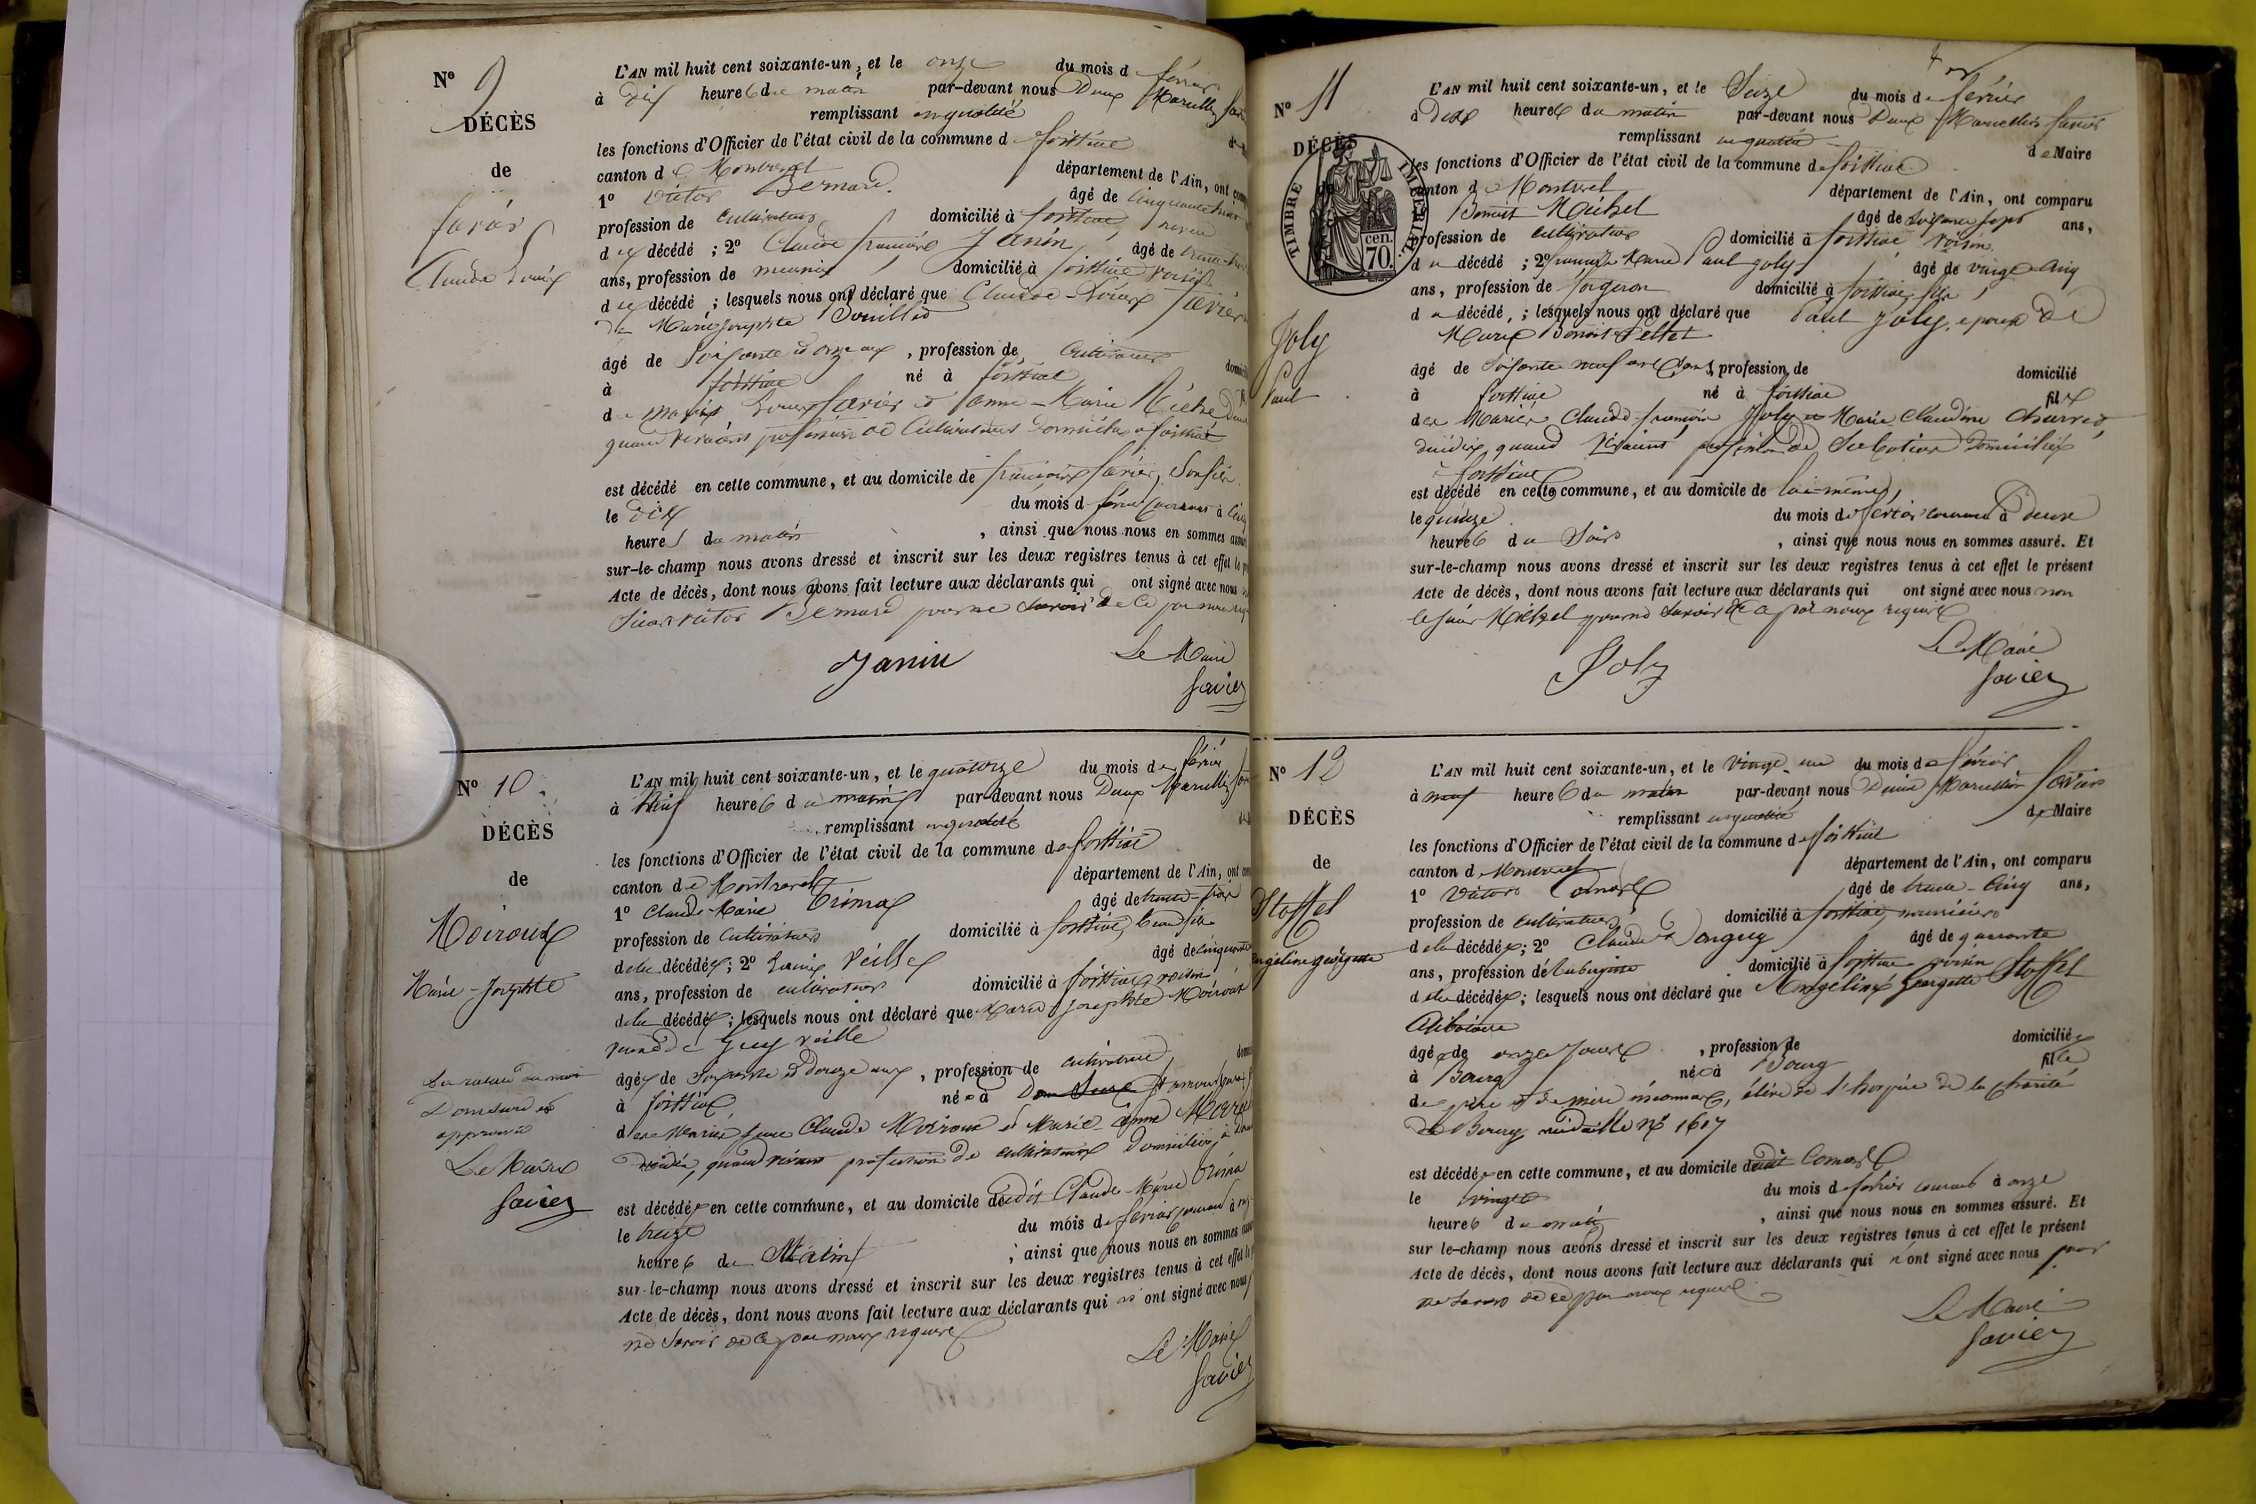 N° 9
DÉCÈS
de
Favier
Claude Louis
L'AN mil huit cent soixante-un, et le onze du mois de février
à dix heures du matin par-devant nous Marcellin
remplissant en qualité
les fonctions d'Officier de l'état civil de la commune de foissiat
canton de Montrevel département de l'Ain, ont
1° Victor Bernard âgé de cinquante
profession de cultivateur domicilié à foissiat
du décédé ; 2° Claude françois Janin âgé de trente
ans, profession de meunier domicilié à foissiat voisin
du décédé ; lesquels nous ont déclaré que Claude Louis favier
de Marie Josephte
âgé de soixante et onze ans, profession de cultivateur
à foissiat né à foissiat
de Louis favier et Jeanne-Marie
quand vivaient profession de cultivateurs domiciliés à foissiat
est décédé en cette commune, et au domicile de françois favier, son fils
le dix du mois de février courant à cinq
heures du matin , ainsi que nous nous en sommes
sur-le-champ nous avons dressé et inscrit sur les deux registres tenus à cet effet le
Acte de décès, dont nous avons fait lecture aux déclarants qui ont signé avec nous
Victor Bernard pour ne savoir de ce par nous
Janin
Le Maire
favier
N° 10
DÉCÈS
de
Moiroux
Marie-Josephte
approuvé
Le Maire
favier
L'AN mil huit cent soixante-un, et le quatorze du mois de février
à neuf heures du matin par-devant nous Marcellin
remplissant en qualité
les fonctions d'Officier de l'état civil de la commune de foissiat
canton de Montrevel département de l'Ain, ont
1° Claude-Marie âgé de trente
profession de cultivateur domicilié à foissiat
de la décédée ; 2° Louis âgé de cinquante
ans, profession de cultivateur domicilié à foissiat voisin
de la décédée ; lesquels nous ont déclaré que Marie Josephte Moiroux
âgée de soixante et douze ans, profession de cultivatrice
à foissiat née à
Claude Moiroux et Marie-Anne
quand vivaient profession de cultivateurs domiciliés à
est décédée en cette commune, et au domicile dudit Claude-Marie
le treize du mois de février courant à
heures du Matin , ainsi que nous nous en sommes
sur-le-champ nous avons dressé et inscrit sur les deux registres tenus à cet effet le
Acte de décès, dont nous avons fait lecture aux déclarants qui n'ont signé avec nous
ne savoir de ce par nous requis
Le Maire
favier
N° 11
DÉCÈS
TIMBRE IMPÉRIAL.
70. cen.
Joly
Paul
L'AN mil huit cent soixante-un, et le Seize du mois de février
à dix heures du matin par-devant nous Marcellin favier
remplissant en qualité de Maire
les fonctions d'Officier de l'état civil de la commune de foissiat
canton de Montrevel département de l'Ain, ont comparu
Benoit âgé de soixante sept ans,
profession de cultivateur domicilié à foissiat voisin
du décédé ; 2° Marie Paul Joly âgé de vingt cinq
ans, profession de forgeron domicilié à foissiat fils
du décédé ; lesquels nous ont déclaré que Paul Joly, époux de
Marie
âgé de soixante neuf ans, profession de domicilié
à foissiat né à foissiat fils
des Mariés Claude-françois Joly et Marie Claudine
décédés quand vivaient profession de domiciliés
à foissiat
est décédé en cette commune, et au domicile de lui-même,
le quinze du mois de février courant à deux
heures du Soir , ainsi que nous nous en sommes assuré. Et
sur-le-champ nous avons dressé et inscrit sur les deux registres tenus à cet effet le présent
Acte de décès, dont nous avons fait lecture aux déclarants qui ont signé avec nous non
le sieur pour ne savoir de ce par nous requis
Joly
Le Maire
favier
N° 12
DÉCÈS
de
Stoffel
Angéline georgette
L'AN mil huit cent soixante-un, et le vingt-un du mois de février
à neuf heures du matin par-devant nous Marcellin favier
remplissant en qualité de Maire
les fonctions d'Officier de l'état civil de la commune de foissiat
canton de Montrevel département de l'Ain, ont comparu
1° Victor âgé de trente-cinq ans,
profession de cultivateur domicilié à foissiat, nourricier
de la décédée ; 2° Claude âgé de quarante
ans, profession d'aubergiste domicilié à foissiat voisin
de la décédée ; lesquels nous ont déclaré que Angéline Georgette Stoffel
âgée de onze jours , profession de domiciliée
à Bourg née à Bourg fille
de père et de mère inconnus, élève de l'hospice de la charité
de Bourg médaille n° 1617
est décédée en cette commune, et au domicile dudit
le vingt du mois de février courant à onze
heures du matin , ainsi que nous nous en sommes assuré. Et
sur le-champ nous avons dressé et inscrit sur les deux registres tenus à cet effet le présent
Acte de décès, dont nous avons fait lecture aux déclarants qui n'ont signé avec nous pour
ne savoir de ce par nous requis
Le Maire
favier